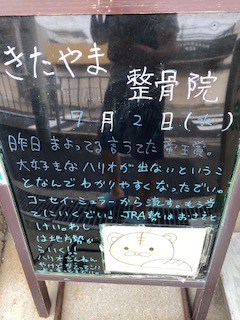 きたやま
整骨院
7月2日(火)
昨日まよってる言うてた帝王賞。
大好きなハリオが出ないというこ
となんでわかりやすくなったでい。
コーセイ・ミュラーから流す。もう当
てにいくでい！JRA勢はおさえと
けい。わし
は地方勢が
いくし！